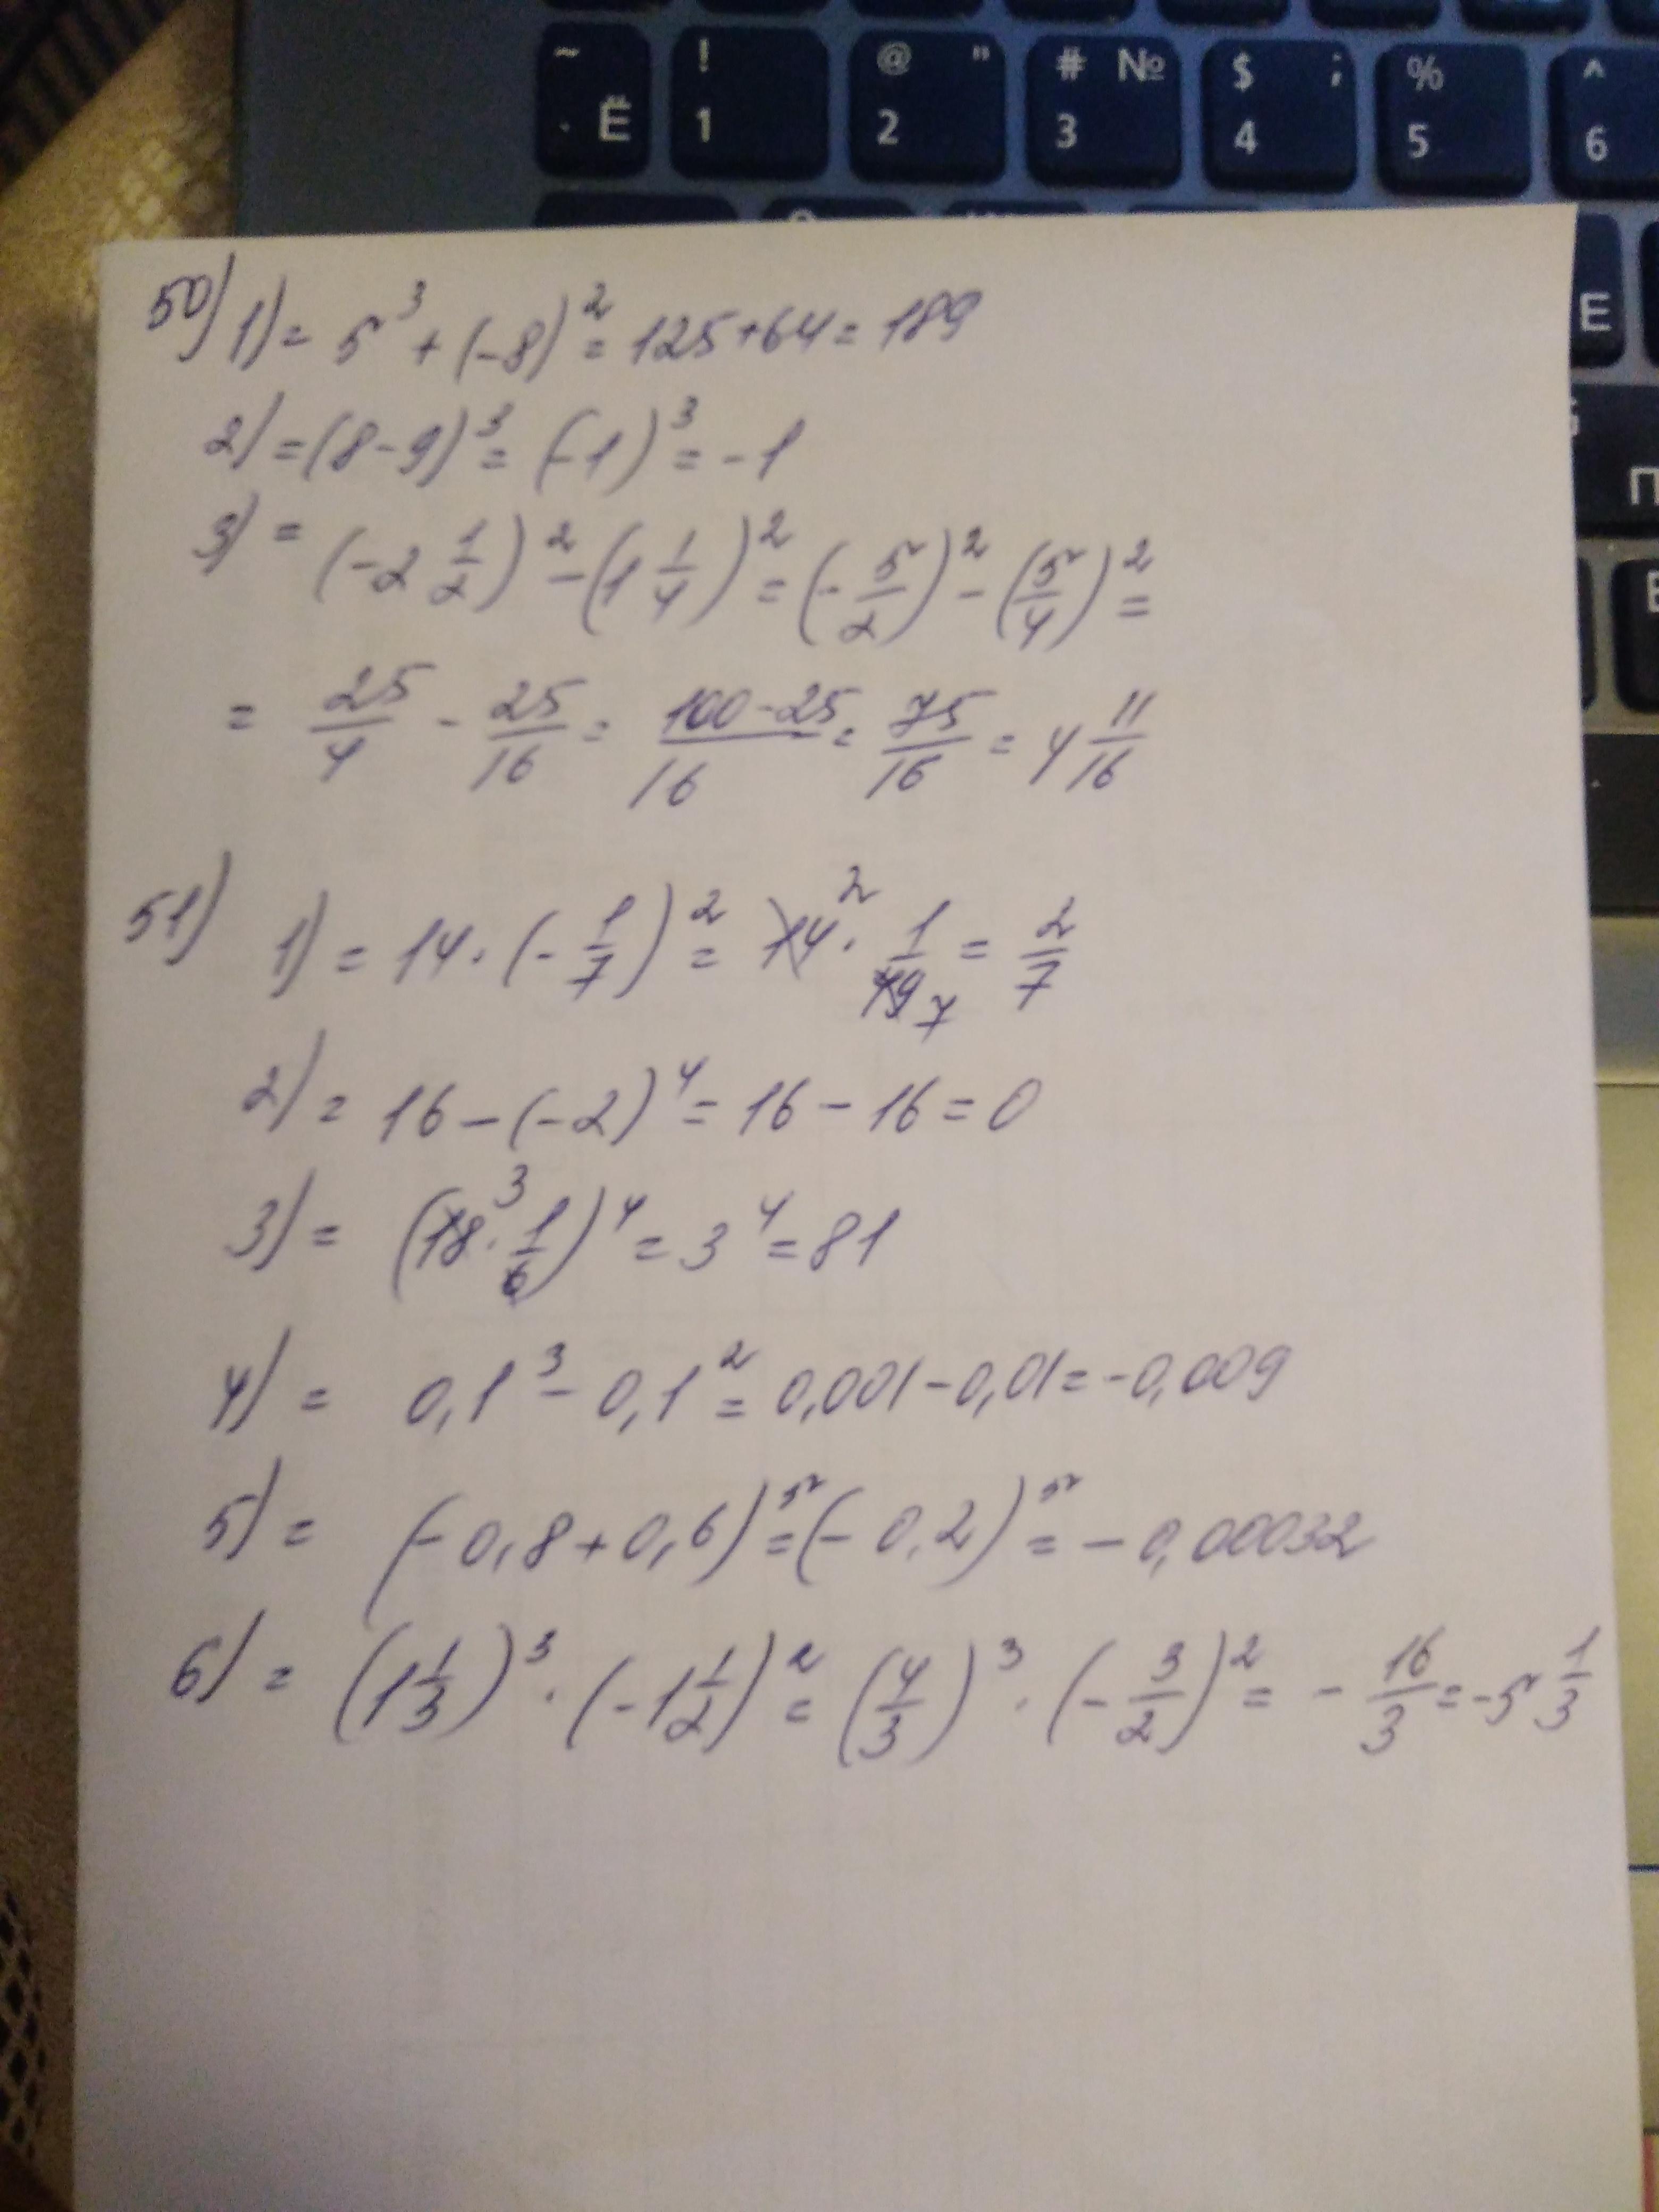 ~ ! @ " # № $ ; % ^
Ё 1 2 3 4 5 6
Е
П
50) 1) = 5³ + (-8)² = 125 + 64 = 189
2) = (8 - 9)³ = (-1)³ = -1
3) = (-2 1/2)² - (1 1/4)² = (- 5/2)² - (5/4)² =
= 25/4 - 25/16 = 100-25/16 = 75/16 = 4 11/16
51) 1) = 14 · (- 1/7)² = 14 2 · 1/49 7 = 2/7
2) = 16 - (-2)⁴ = 16 - 16 = 0
3) = (18 3 · 1/6)⁴ = 3⁴ = 81
4) = 0,1³ - 0,1² = 0,001 - 0,01 = -0,009
5) = (-0,8 + 0,6)⁵ = (-0,2)⁵ = -0,00032
6) = (1 1/3)³ · (-1 1/2)² = (4/3)³ · (- 3/2)² = - 16/3 = -5 1/3